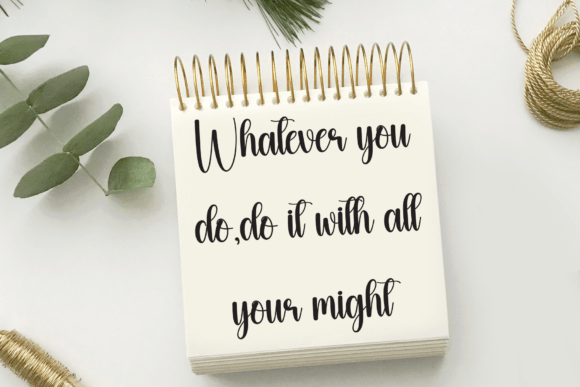 Whatever you
do,do it with all
your might